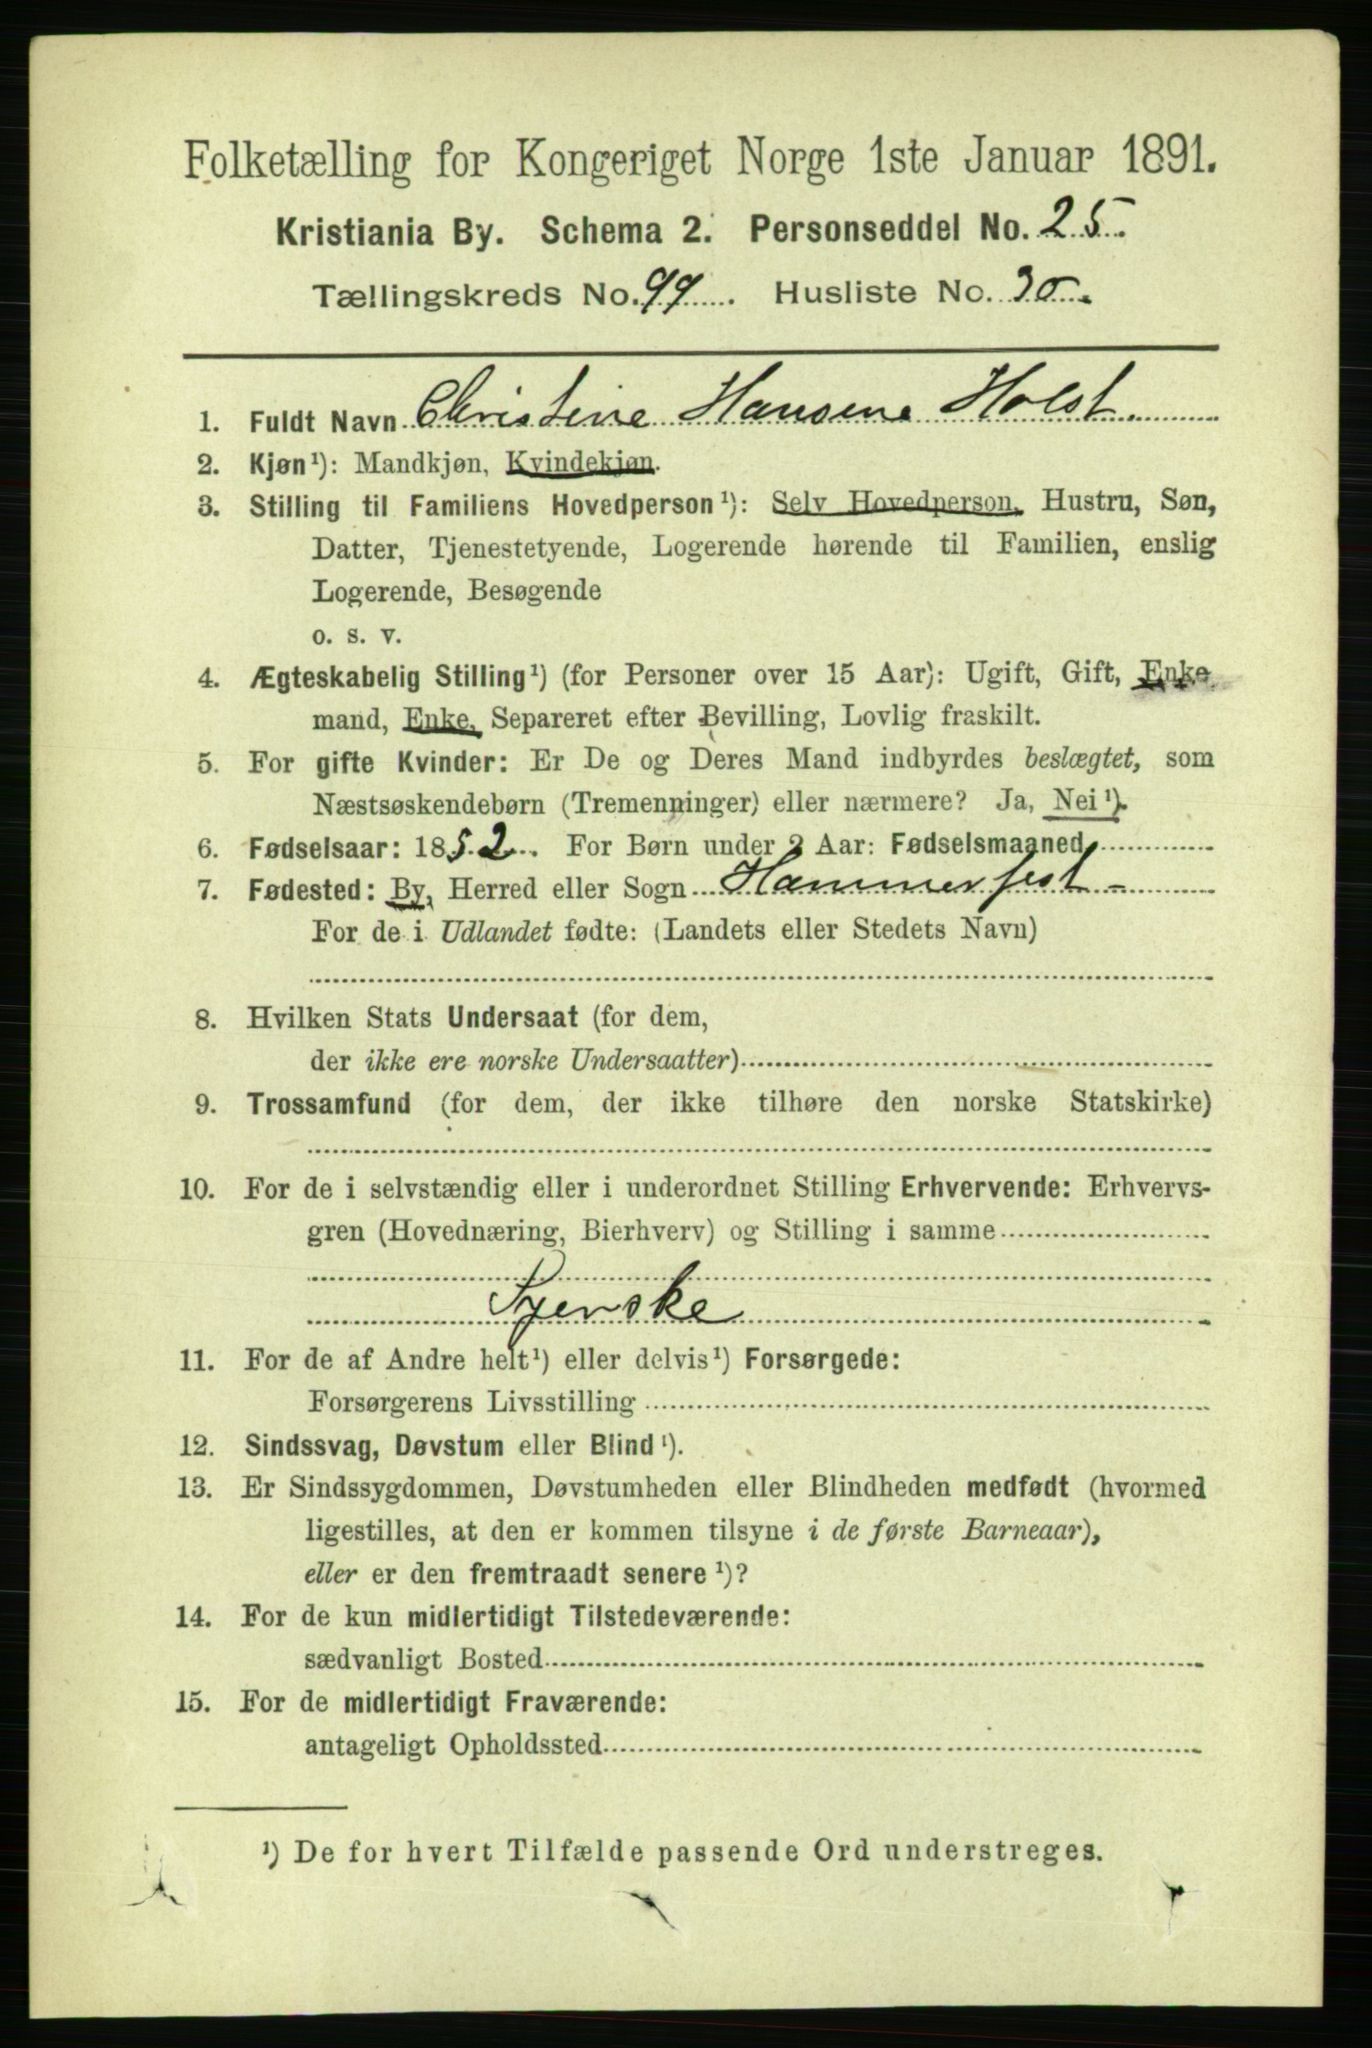 Folketælling for Kongeriget Norge 1ste Januar 1891.
Kristiania By. Schema 2. Personseddel No. 25.
Tællingskreds No. 99. Husliste No. 30.
1. Fuldt Navn Christine Hansene Holst
2. Kjøn¹): Mandkjøn, Kvindekjøn.
3. Stilling til Familiens Hovedperson¹): Selv Hovedperson, Hustru, Søn,
Datter, Tjenestetyende, Logerende hørende til Familien, enslig
Logerende, Besøgende
o. s. v.
4. Ægteskabelig Stilling¹) (for Personer over 15 Aar): Ugift, Gift, Enke
mand, Enke, Separeret efter Bevilling, Lovlig fraskilt.
5. For gifte Kvinder: Er De og Deres Mand indbyrdes beslægtet, som
Næstsøskendebørn (Tremenninger) eller nærmere? Ja, Nei¹).
6. Fødselsaar: 1852. For Børn under 2 Aar: Fødselsmaaned
7. Fødested: By, Herred eller Sogn Hammerfest
For de i Udlandet fødte: (Landets eller Stedets Navn)
8. Hvilken Stats Undersaat (for dem,
der ikke ere norske Undersaatter)
9. Trossamfund (for dem, der ikke tilhøre den norske Statskirke)
10. For de i selvstændig eller i underordnet Stilling Erhvervende: Erhvervs-
gren (Hovednæring, Bierhverv) og Stilling i samme
Syerske
11. For de af Andre helt¹) eller delvis¹) Forsørgede:
Forsørgerens Livsstilling
12. Sindssvag, Døvstum eller Blind¹).
13. Er Sindssygdommen, Døvstumheden eller Blindheden medfødt (hvormed
ligestilles, at den er kommen tilsyne i de første Barneaar),
eller er den fremtraadt senere¹)?
14. For de kun midlertidigt Tilstedeværende:
sædvanligt Bosted
15. For de midlertidigt Fraværende:
antageligt Opholdssted
¹) De for hvert Tilfælde passende Ord understreges.